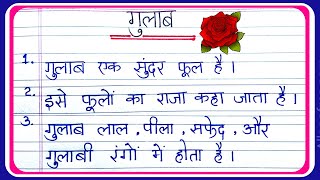 गुलाब
1. गुलाब एक सुंदर फूल है।
2. इसे फूलों का राजा कहा जाता है।
3. गुलाब लाल, पीला, सफेद, और
गुलाबी रंगों में होता है।